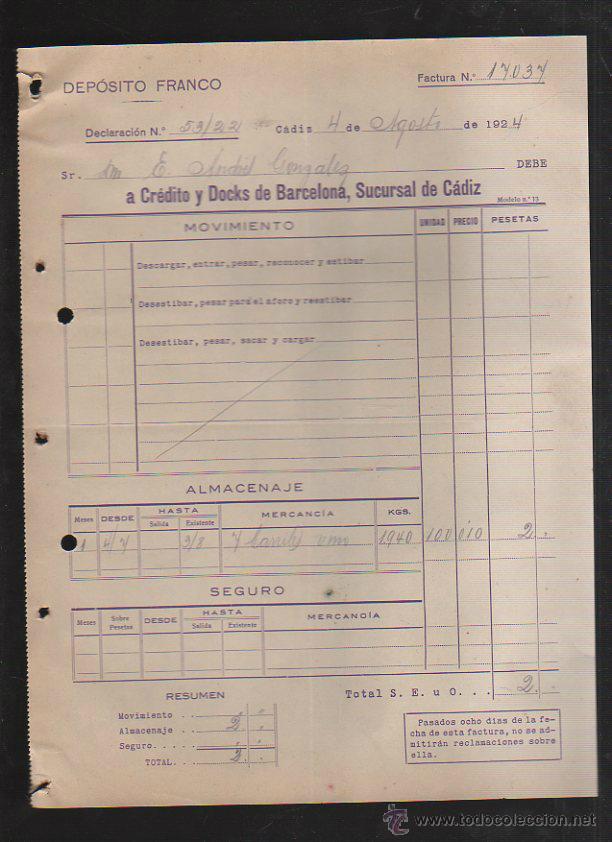 DEPÓSITO FRANCO
Factura N.º 17.037
Declaración N.º 53/22 Cádiz 4 de Agosto de 1924
Sr. E. Gonzalez DEBE
a Crédito y Docks de Barcelona, Sucursal de Cádiz
Modelo n.º 13
MOVIMIENTO UNIDAD PRECIO PESETAS
Descargar, entrar, pesar, reconocer y estibar
Desestibar, pesar para el aforo y reestibar
Desestibar, pesar, sacar y cargar
ALMACENAJE
Meses DESDE HASTA Salida Existente MERCANCÍA KGS.
1 4/7 3/8 7 vino 1940 100 010 2.-
SEGURO
Meses Sobre Pesetas DESDE HASTA Salida Existente MERCANCÍA
Total S. E. u O. . . 2.-
RESUMEN
Movimiento . .
Almacenaje . . 2
Seguro. . . . .
TOTAL. . . 2.
Pasados ocho días de la fe-
cha de esta factura, no se ad-
mitirán reclamaciones sobre
ella.
www.todocoleccion.net